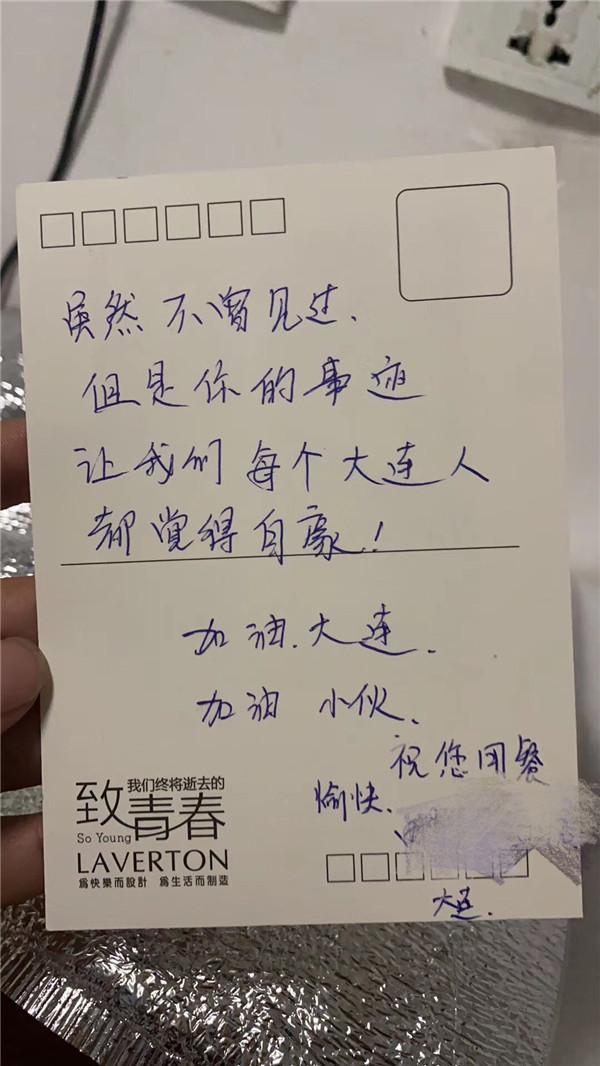 虽然不曾见过.
但是你的事迹
让我们每个大连人
都觉得自豪!
加油.大连.
加油 小伙.
祝您用餐
愉快.
大连.
我们终将逝去的
致青春
So Young
LAVERTON
爲快樂而設計 爲生活而制造